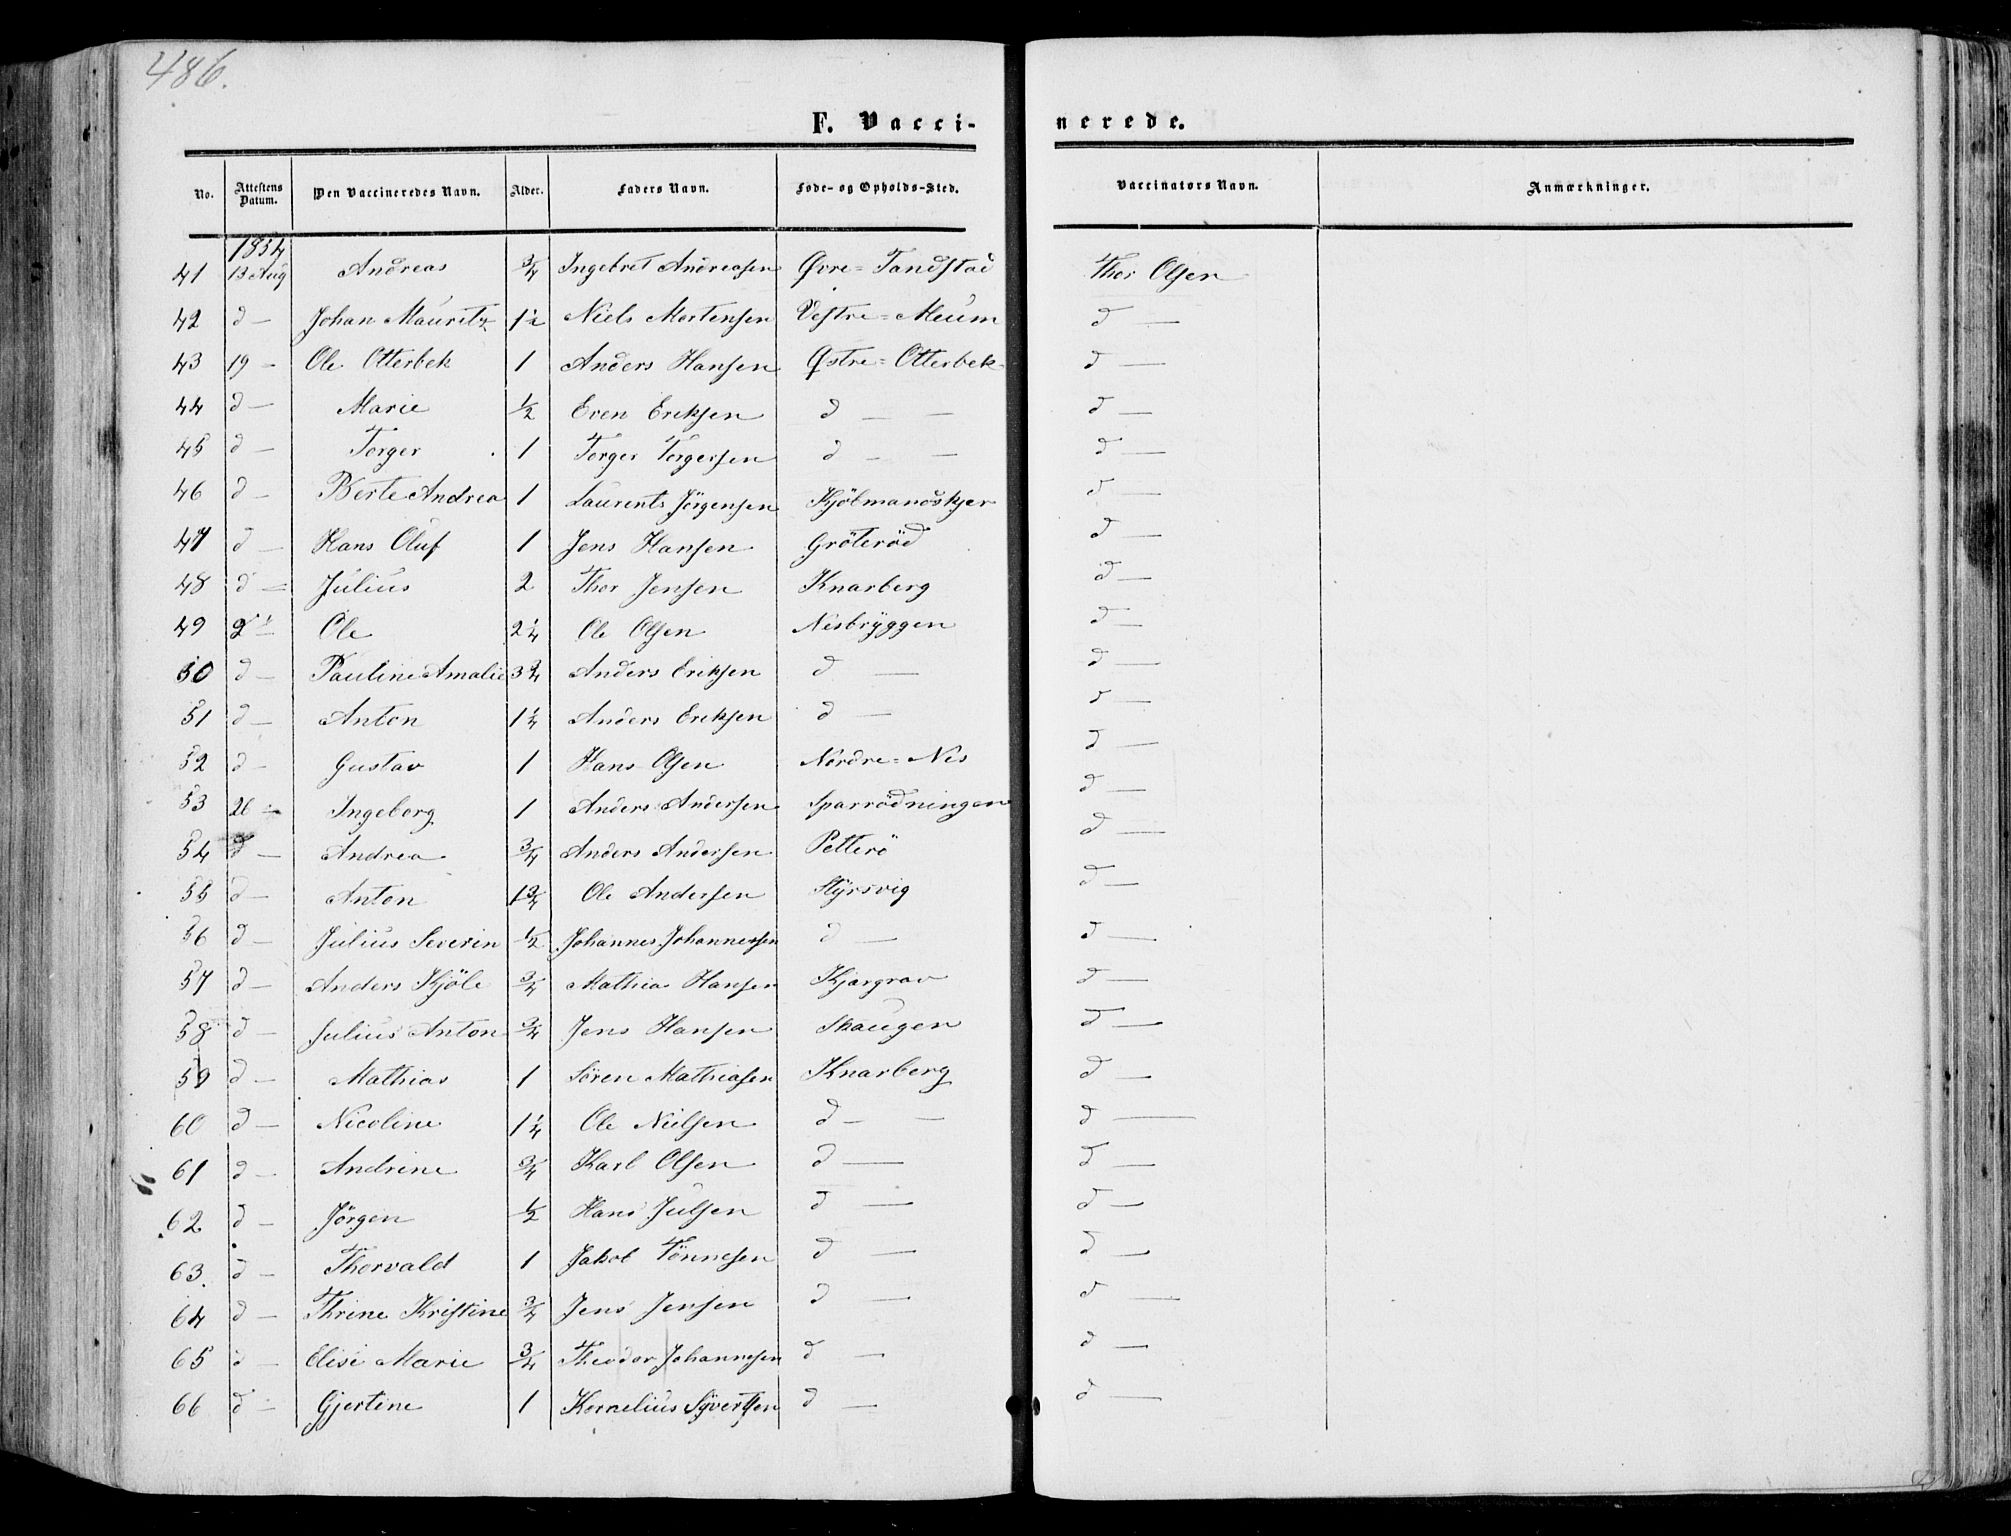 486.
F. Vacci-nerede.
No. Attestens Datum. Den Vaccineredes Navn. Alder. Faders Navn. Føde- og Opholds-Sted. Vaccinators Navn. Anmærkninger.
1854
41 13 Aug Andreas 3/4 Ingebret Andreasen Øvre=Tandstad Thor Olsen
42 d — Johan Mauritz 1 1/2 Niels Mortensen Vestre=Meum d —
43 19 – Ole Otterbek 1 Anders Hansen Østre=Otterbek d —
44 d — Marie 1/2 Even Eriksen d — — d —
45 d — Torger 1 Torger Torgersen d — — d —
46 d – Berte Andrea 1 Laurents Jörgensen Kjölmandskjer d —
47 d — Hans Oluf 1 Jens Hansen Gröteröd d —
48 d — Julius 2 Thor Jensen Knarberg d —
49 d — Ole 2 1/4 Ole Olsen Nesbryggen d —
50 d – Pauline Amalie 3 3/4 Anders Eriksen d — d —
51 d – Anton 1 1/4 Anders Eriksen d — d —
52 d – Gustav 1 Hans Olsen Nordre=Nes d —
53 26 – Ingeborg 1 Anders Andersen Sparrödningen d —
54 d — Andrea 3/4 Anders Andersen Petterö d —
55 d – Anton 1 3/4 Ole Andersen Styrsvig d —
56 d – Julius Severin 1/2 Johannes Johannessen d — d —
57 d – Anders Kjöle 3/4 Mathias Hansen Kjærgrav d —
58 d – Julius Anton 3/4 Jens Hansen Skaugen d —
59 d – Mathias 1 Sören Mathiasen Knarberg d —
60 d — Nicoline 1 1/4 Ole Nielsen d – — d —
61 d — Andrine 3/4 Karl Olsen d — d —
62 d – Jörgen 1/2 Hans Julsen d — d —
63. d – Thorvald 1 Jakob Tönnesen d — d —
64 d — Thrine Kristine 3/4 Jens Jensen d — d —
65 d – Elise Marie 3/4 Theodor Johannesen d — d —
66 d – Gjertine 1 Kornelius Syvertsen d — d —